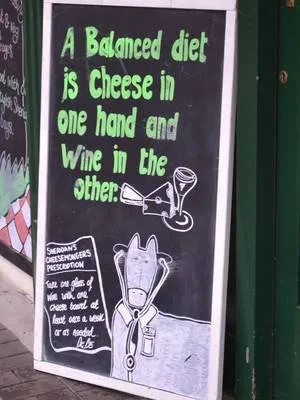 A Balanced diet
is Cheese in
one hand and
Wine in the
other.
SHERIDAN'S
CHEESEMONGERS
PRESCRIPTION
Take one glass of
wine with one
cheese board at
least once a week
or as needed